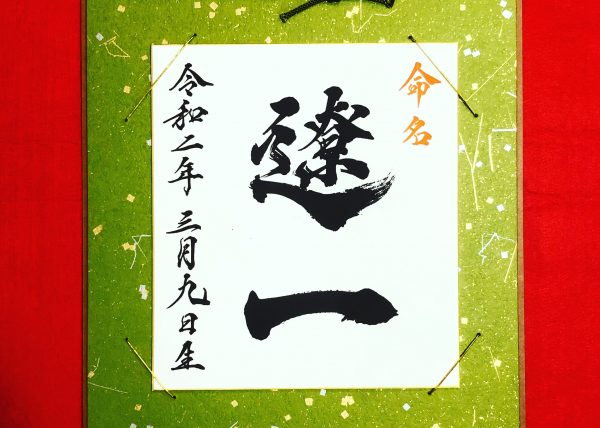 命名
遼一
令和二年 三月九日生